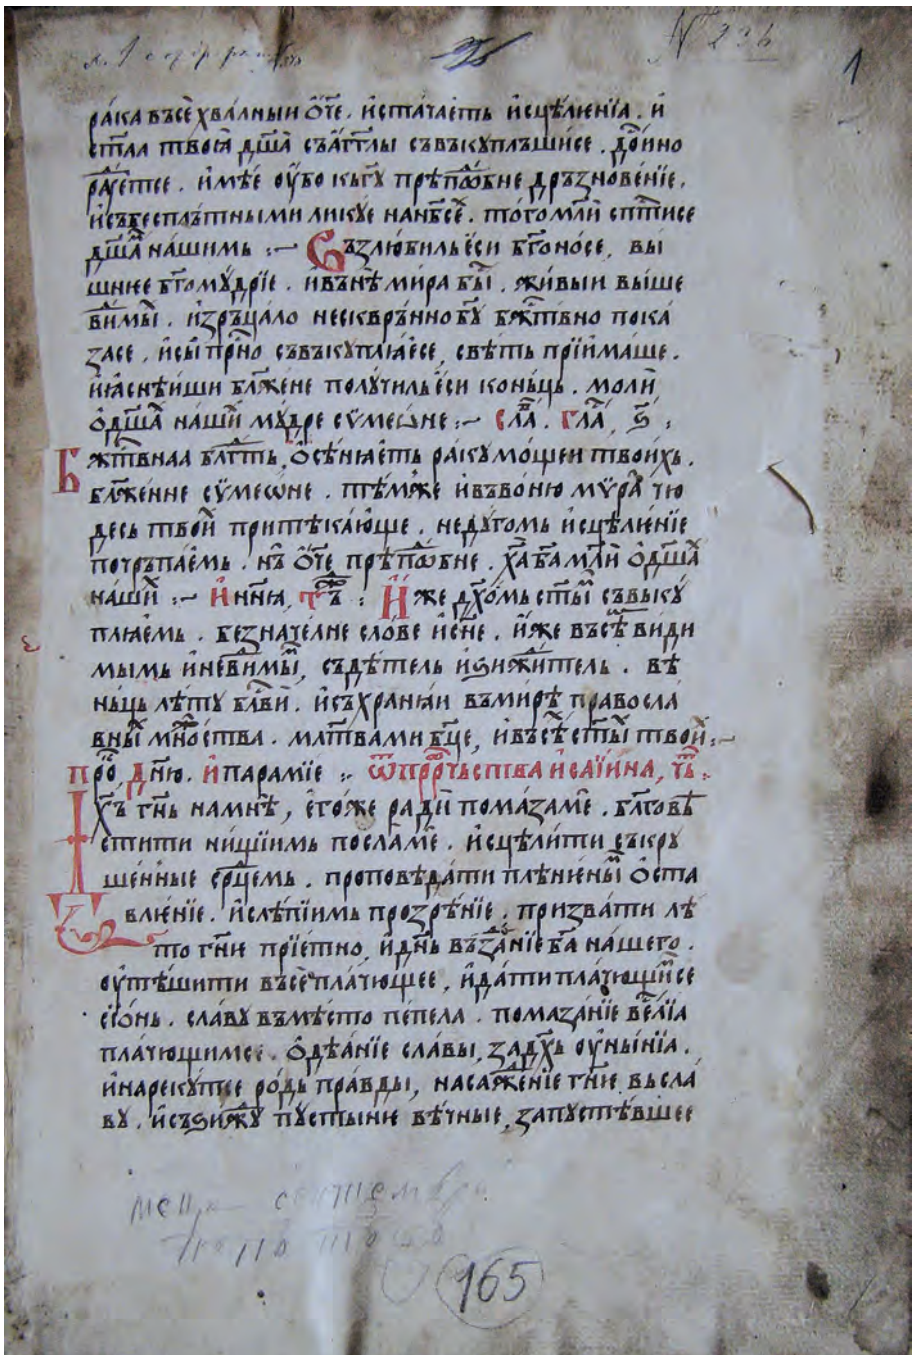 № 236
1
рáка въсехвáлныи ѻ҃че . и҆стачаѥть и҆сцѣлиѥнїа . и҆
ст҃лаа твоꙗ дш҃а съа҆гг҃лы съвъкупльшисе . дⷭ҇оино
рⷣауетсе . и҆мѣе оу҆бо кь бг҃у прѣпⷣѡбне дръзновéнїе .
и събесплътными ликуе на нб҃се . того млⷧ҇и сп҃тисе
дш҃аⷨ нáшимь :~ Възлюбиль ѥ҆си бг҃онóсе , вы
шнѥе бг҃омꙋ́дрїе . и҆ вънѣ мира быⷭ҇ . живыи выше
виⷣмыⷯ . и҆ зръцало несквръ́нно бг҃у бжⷭ҇твно пока
засе . и҆сы̀ прⷭ҇но съвъкуплꙗ́ѥсе , свѣть прїи҆мáше .
и҆ꙗснѣи҆ши блаⷤ҇не получиль ѥ҆си коньць . моли
ѡ҆ дш҃аⷯ нашиⷯ мꙋ́дре сѵмеѡне :~ слаⷡ҇ . глаⷭ҇ , ѕ҃ :
Бжⷭ҇твнаа блгⷣть , ѻ҆сѣнꙗѥть раку мóщеи твоихь .
блаⷤ҇нне сѵмеѡне . тѣмже и҆ въ воню мѵ́ра чю
десь твоиⷯ притѣкáюще . недꙋ́гомь и҆сцѣлиѥ́нїе
почръпаѥмь . нъ ѻ҃че прѣпⷣѡбне . хⷭ҇а ба҃ млⷧ҇и ѡ҆ дш҃аⷯ
нáшиⷯ :~ И҆ нн҃ꙗ , :  И҆же дх҃óмь ст҃ыⷨ съвькꙋ́
плꙗемь . безначелне слове и҆ сн҃е . и҆же въсѣⷨ види
мымь и҆ невиⷣмыⷨ , съдѣтель и҆ ѕижⷣитель . вѣ
ньць лѣту блⷭ҇ви . и҆ съхранꙗи въ мирѣ правосла
вныⷯ мнⷪ҇жства . млт҃вами бц҃е , и҆ въсѣⷯ ст҃ыⷯ твоиⷯ :~
прⷪ҇ , дн҃ю . и҆ парамїе :~ ѿ прⷪ҇рчьства и҆саїина ,
Дх҃ъ гн҃ь на мнѣ , ѥ҆гоже ради помáза ме . блг҃овѣ
стити нищїимь посла ме . и҆сцѣлити съкру
шенныѥ срⷣцемь . проповѣдати плѣниѥныⷨ ѻ҆ста
влиѥ́нїе . и҆ слѣпїимь прозрѣ́нїе . призвати лѣ
то гн҃и прїѥтно , и҆ дн҃ь въздаⷩ҇їе ба҃ нáшего .
оу҆тѣшити въсе плáчющее , и҆ дáти плачющиⷨсе
сїонь . славу въ мѣсто пепела . помазáнїе веⷭ҇лїа
плачющимсе . ѻ҆дѣáнїе славы , за дх҃ь оу҆ны́нїа .
и҆ нарекутсе рóдь прáвды , насаждⷣéнїе гн҃ѥ вь сла
ву . и҆ съѕижⷣу пустыниѥ вѣчныѥ , запустѣвшее
165